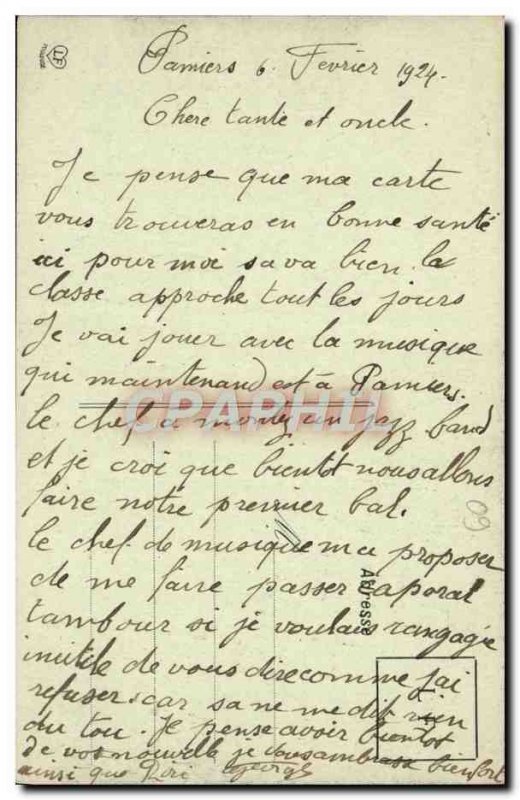 Pamiers 6 Fevrier 1924.
Chere tante et oncle.
Je pense que ma carte
vous trouveras en bonne santé
ici pour moi sava bien. la
classe approche tout les jours
Je vai jouer avec la musique
qui maintenand est à Pamiers.
le chef a montez un jazz band
et je croi que bientot nous allons
faire notre premier bal.
le chef de musique ma proposer
de me faire passer caporal
tambour si je voulais rangagie
inutile de vous dire comme j'ai
refuser. car sa ne me dit rien
du tou. Je pense avoir bientot
de vos nouvelle je vous ambrasse bien fort
ainsi que Riri Georges
Adresse
60
CPAPHIL